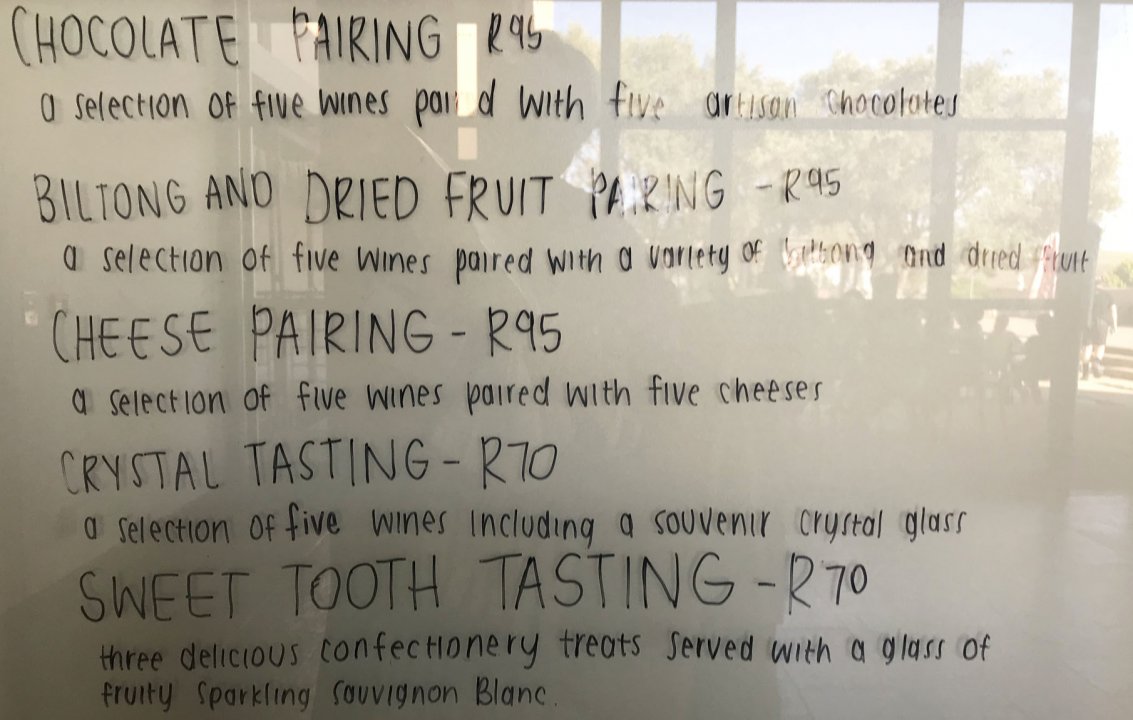 CHOCOLATE PAIRING R95
a selection of five wines paired with five artisan chocolates
BILTONG AND DRIED FRUIT PAIRING - R95
a selection of five wines paired with a variety of biltong and dried fruit
CHEESE PAIRING - R95
a selection of five wines paired with five cheeses
CRYSTAL TASTING - R70
a selection of five wines including a souvenir crystal glass
SWEET TOOTH TASTING - R70
three delicious confectionery treats served with a glass of
fruity sparkling sauvignon Blanc.